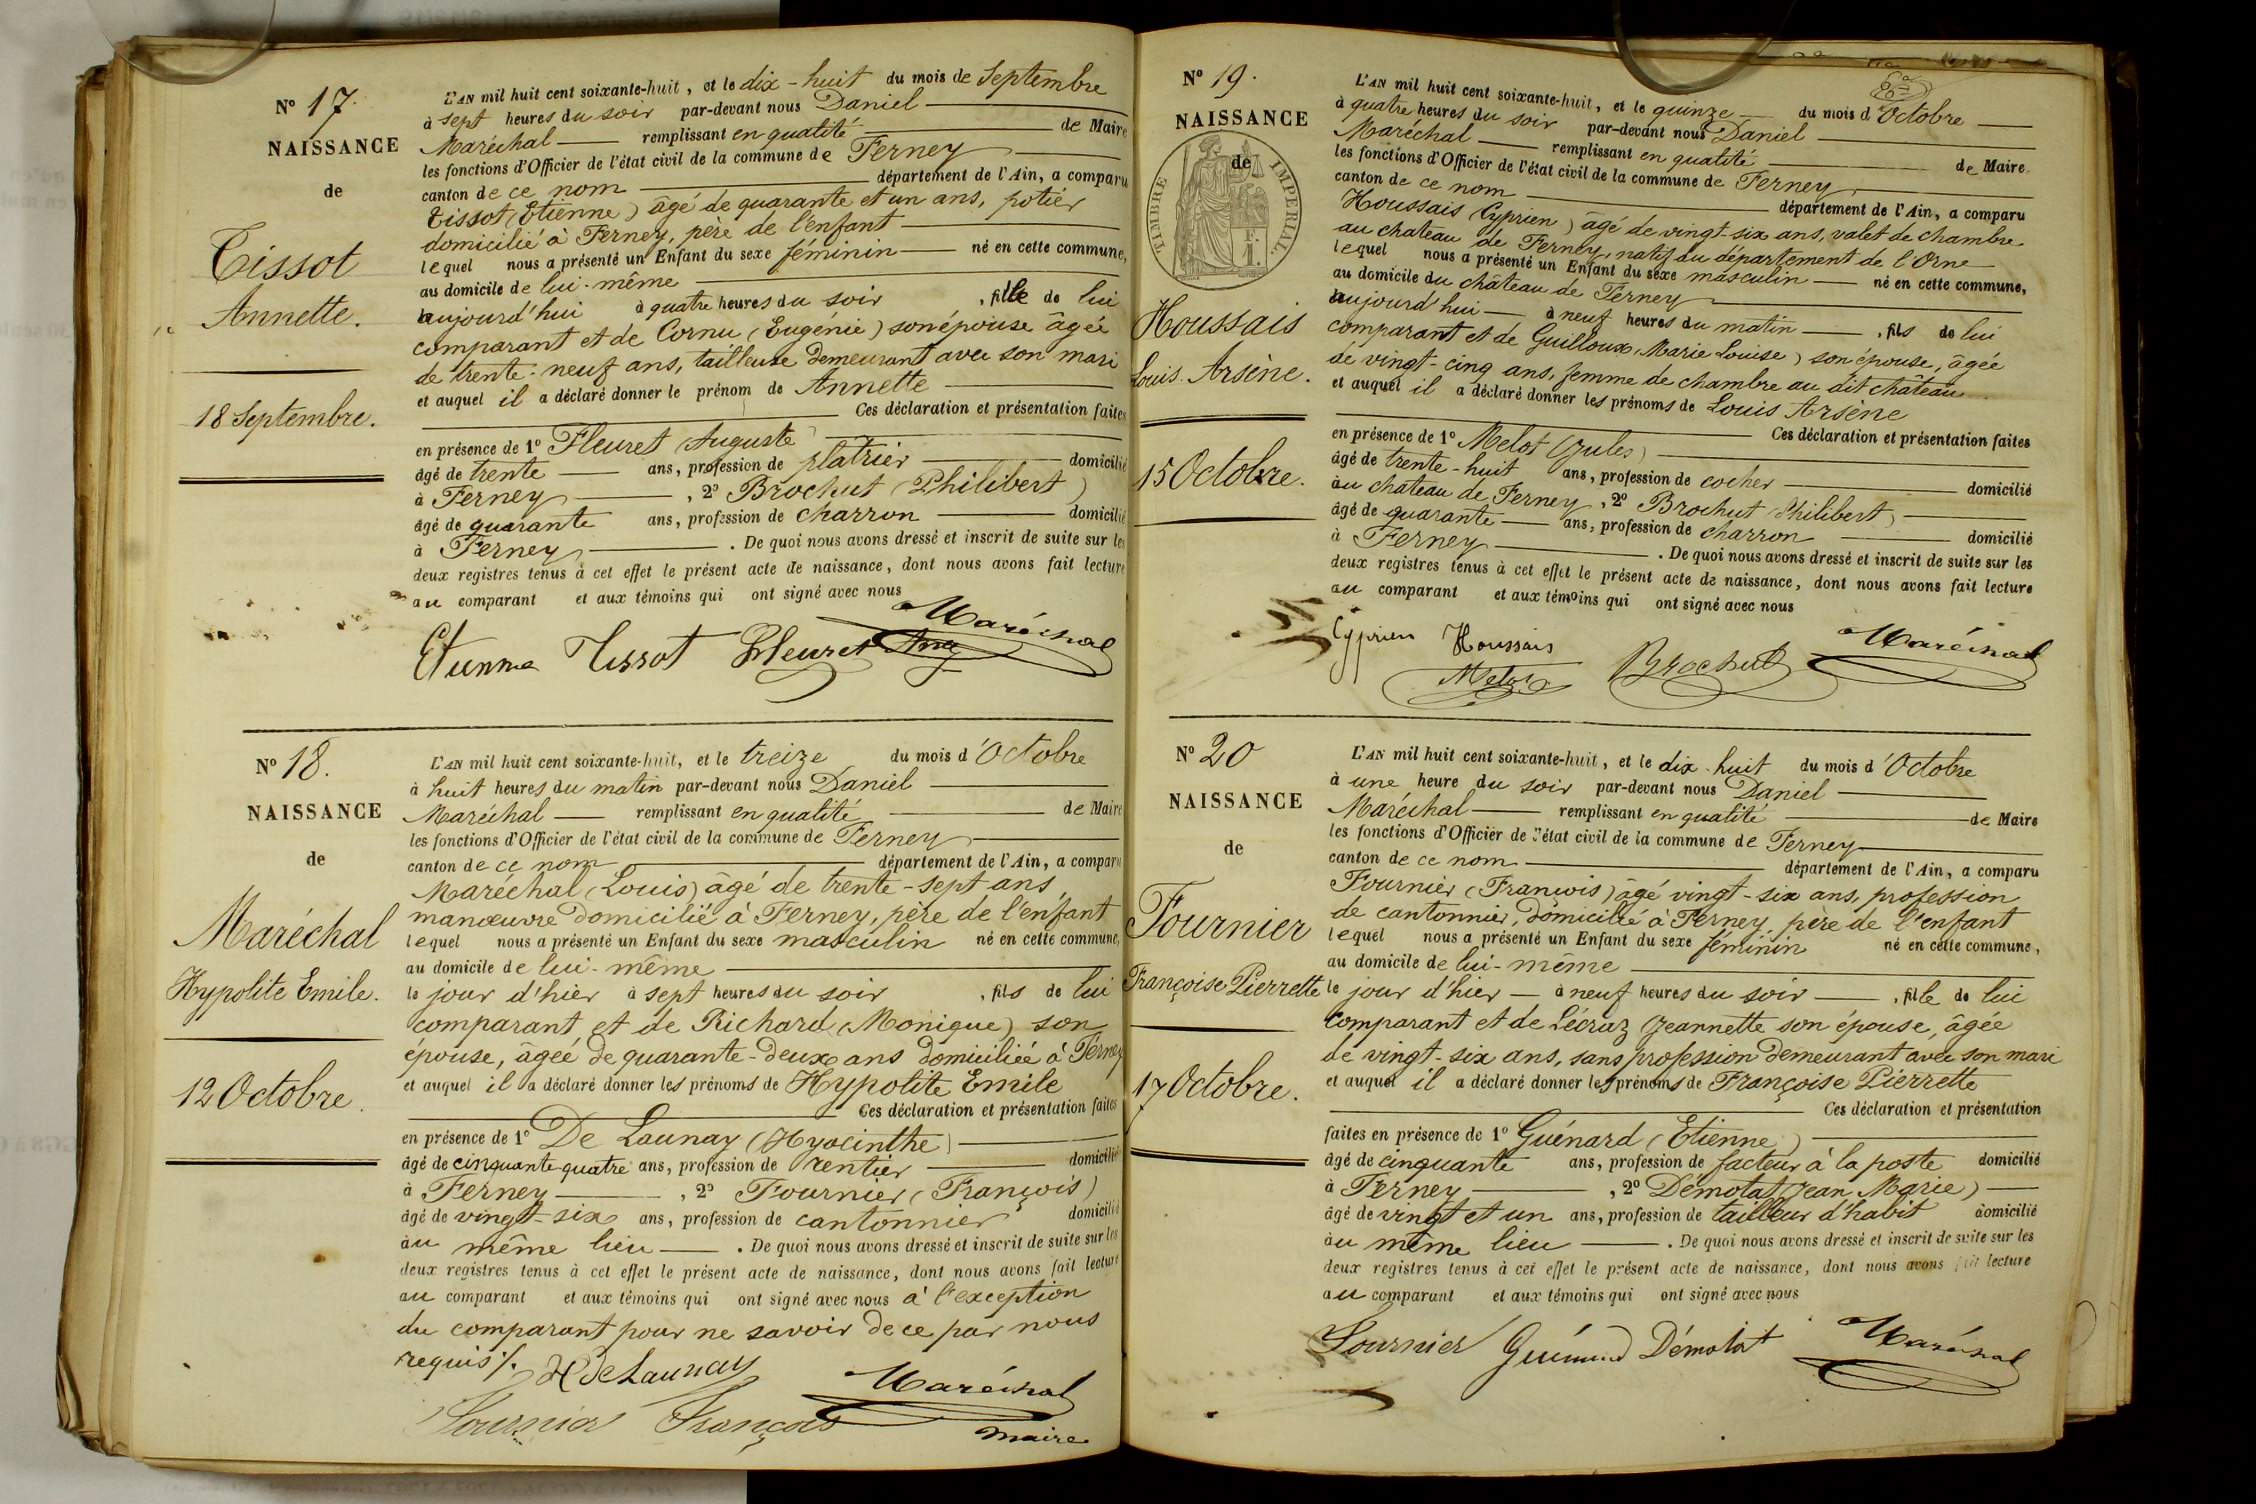 N° 17.
NAISSANCE
de
Tissot
Annette.
18 Septembre.
L'AN mil huit cent soixante-huit, et le dix-huit du mois de Septembre
à sept heures du soir par-devant nous Daniel
Maréchal remplissant en qualité de Maire
les fonctions d'Officier de l'état civil de la commune de Ferney
canton de ce nom département de l'Ain, a comparu
Tissot (Etienne) âgé de quarante et un ans, potier
domicilié à Ferney, père de l'enfant
lequel nous a présenté un Enfant du sexe féminin né en cette commune,
au domicile de lui-même
aujourd'hui à quatre heures du soir, fille de lui
comparant et de Cornu (Eugénie) son épouse âgée
de trente-neuf ans, tailleuse demeurant avec son mari
et auquel il a déclaré donner le prénom de Annette
Ces déclaration et présentation faites
en présence de 1° Fleuret (Auguste)
âgé de trente ans, profession de platrier domicilié
à Ferney, 2° Brochut (Philibert)
âgé de quarante ans, profession de charron domicilié
à Ferney. De quoi nous avons dressé et inscrit de suite sur les
deux registres tenus à cet effet le présent acte de naissance, dont nous avons fait lecture
au comparant et aux témoins qui ont signé avec nous
Maréchal
Etienne Tissot Fleuret Aug
N° 18.
NAISSANCE
de
Maréchal
Hypolite Emile.
12 Octobre.
L'AN mil huit cent soixante-huit, et le treize du mois d'Octobre
à huit heures du matin par-devant nous Daniel
Maréchal remplissant en qualité de Maire
les fonctions d'Officier de l'état civil de la commune de Ferney
canton de ce nom département de l'Ain, a comparu
Maréchal (Louis) âgé de trente-sept ans,
manœuvre domicilié à Ferney, père de l'enfant
lequel nous a présenté un Enfant du sexe masculin né en cette commune,
au domicile de lui-même
le jour d'hier à sept heures du soir, fils de lui
comparant et de Richard (Monique) son
épouse, âgée de quarante-deux ans domiciliée à Ferney
et auquel il a déclaré donner les prénoms de Hypolite Emile
Ces déclaration et présentation faites
en présence de 1° De Launay (Hyacinthe)
âgé de cinquante quatre ans, profession de rentier domicilié
à Ferney, 2° Fournier (François)
âgé de vingt-six ans, profession de cantonnier domicilié
au même lieu. De quoi nous avons dressé et inscrit de suite sur les
deux registres tenus à cet effet le présent acte de naissance, dont nous avons fait lecture
au comparant et aux témoins qui ont signé avec nous à l'exception
du comparant pour ne savoir de ce par nous
requis ./.
H De Launay
Maréchal
Fournier François
maire
N° 19.
NAISSANCE
de
TIMBRE IMPERIAL
Houssais
Louis Arsène.
15 Octobre.
L'AN mil huit cent soixante-huit, et le quinze du mois d'Octobre
à quatre heures du soir par-devant nous Daniel
Maréchal remplissant en qualité de Maire
les fonctions d'Officier de l'état civil de la commune de Ferney
canton de ce nom département de l'Ain, a comparu
Houssais (Cyprien) âgé de vingt-six ans, valet de chambre
au chateau de Ferney, natif du département de l'Orne
lequel nous a présenté un Enfant du sexe masculin né en cette commune,
au domicile du château de Ferney
aujourd'hui à neuf heures du matin, fils de lui
comparant et de Guilloux (Marie Louise) son épouse, âgée
de vingt-cinq ans, femme de chambre au dit château
et auquel il a déclaré donner les prénoms de Louis Arsène
Ces déclaration et présentation faites
en présence de 1° Melot (Jules)
âgé de trente-huit ans, profession de cocher domicilié
au chateau de Ferney, 2° Brochut (Philibert)
âgé de quarante ans, profession de charron domicilié
à Ferney. De quoi nous avons dressé et inscrit de suite sur les
deux registres tenus à cet effet le présent acte de naissance, dont nous avons fait lecture
au comparant et aux témoins qui ont signé avec nous
Cyprien Houssais
Melot Brochut Maréchal
N° 20
NAISSANCE
de
Fournier
Françoise Pierrette
17 Octobre.
L'AN mil huit cent soixante-huit, et le dix-huit du mois d'Octobre
à une heure du soir par-devant nous Daniel
Maréchal remplissant en qualité de Maire
les fonctions d'Officier de l'état civil de la commune de Ferney
canton de ce nom département de l'Ain, a comparu
Fournier (François) âgé vingt-six ans, profession
de cantonnier, domicilié à Ferney, père de l'enfant
lequel nous a présenté un Enfant du sexe féminin né en cette commune,
au domicile de lui-même
le jour d'hier à neuf heures du soir, fille de lui
comparant et de Lécruz (Jeannette son épouse, âgée
de vingt-six ans, sans profession demeurant avec son mari
et auquel il a déclaré donner les prénoms de Françoise Pierrette
Ces déclaration et présentation
faites en présence de 1° Guénard (Etienne)
âgé de cinquante ans, profession de facteur à la poste domicilié
à Ferney, 2° Démotat (Jean Marie)
âgé de vingt et un ans, profession de tailleur d'habit domicilié
au même lieu. De quoi nous avons dressé et inscrit de suite sur les
deux registres tenus à cet effet le présent acte de naissance, dont nous avons fait lecture
au comparant et aux témoins qui ont signé avec nous
Fournier Guénard Démotat Maréchal